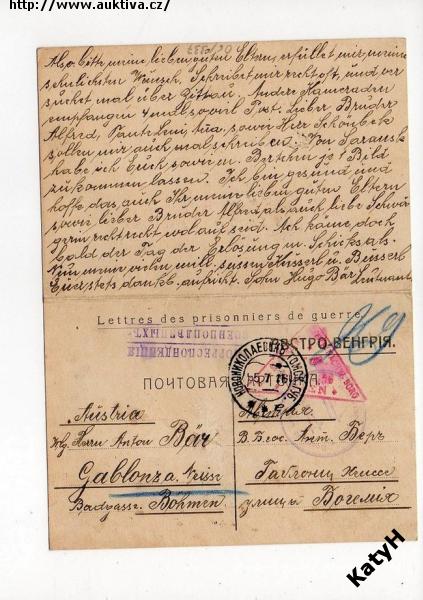 http://www.auktiva.cz/
Also bitte meine lieben guten Eltern, erfüllet mir meine
sehnlichsten Wünsch. Schreibet mir recht oft, und ver
suchet mal über Zittau. Andere Kameraden
empfangen 4 mal soviel Post. Lieber Bruder
Alfred, sowie Herr Schönbek
sollen mir auch mal schreiben. Von Saransk
habe ich Euch sowie an je 1 Bild
zukommen lassen. Ich bin gesund und
hoffe das auch Ihr meine lieben guten Eltern
sowie lieber Bruder Alfred als auch liebe Schwä
gerin recht recht wol auf seid. Ach käme doch
bald der Tag der Erlösung u. Schicksals.
Nun will süssen u. Busserl
Euer stets dankb. aufricht. Sohn Hugo Bär
Lettres des prisonniers de guerre.
КОРРЕСПОНДЕНЦІЯ
ВОЕННОПЛѢННЫХЪ
АВСТРО-ВЕНГРІЯ.
ПОЧТОВАЯ
НИКОЛАЕВСКЪ ТОМСК. ГУБ.
5 7 16
69
Austria
Wlg. Herrn Anton Bär
Gablonz a. Neisse
Badgasse. Böhmen.
Австрія.
В. Бгос. Ант. Беръ
Габлонц Неиссе
улица Богемія
KatyH